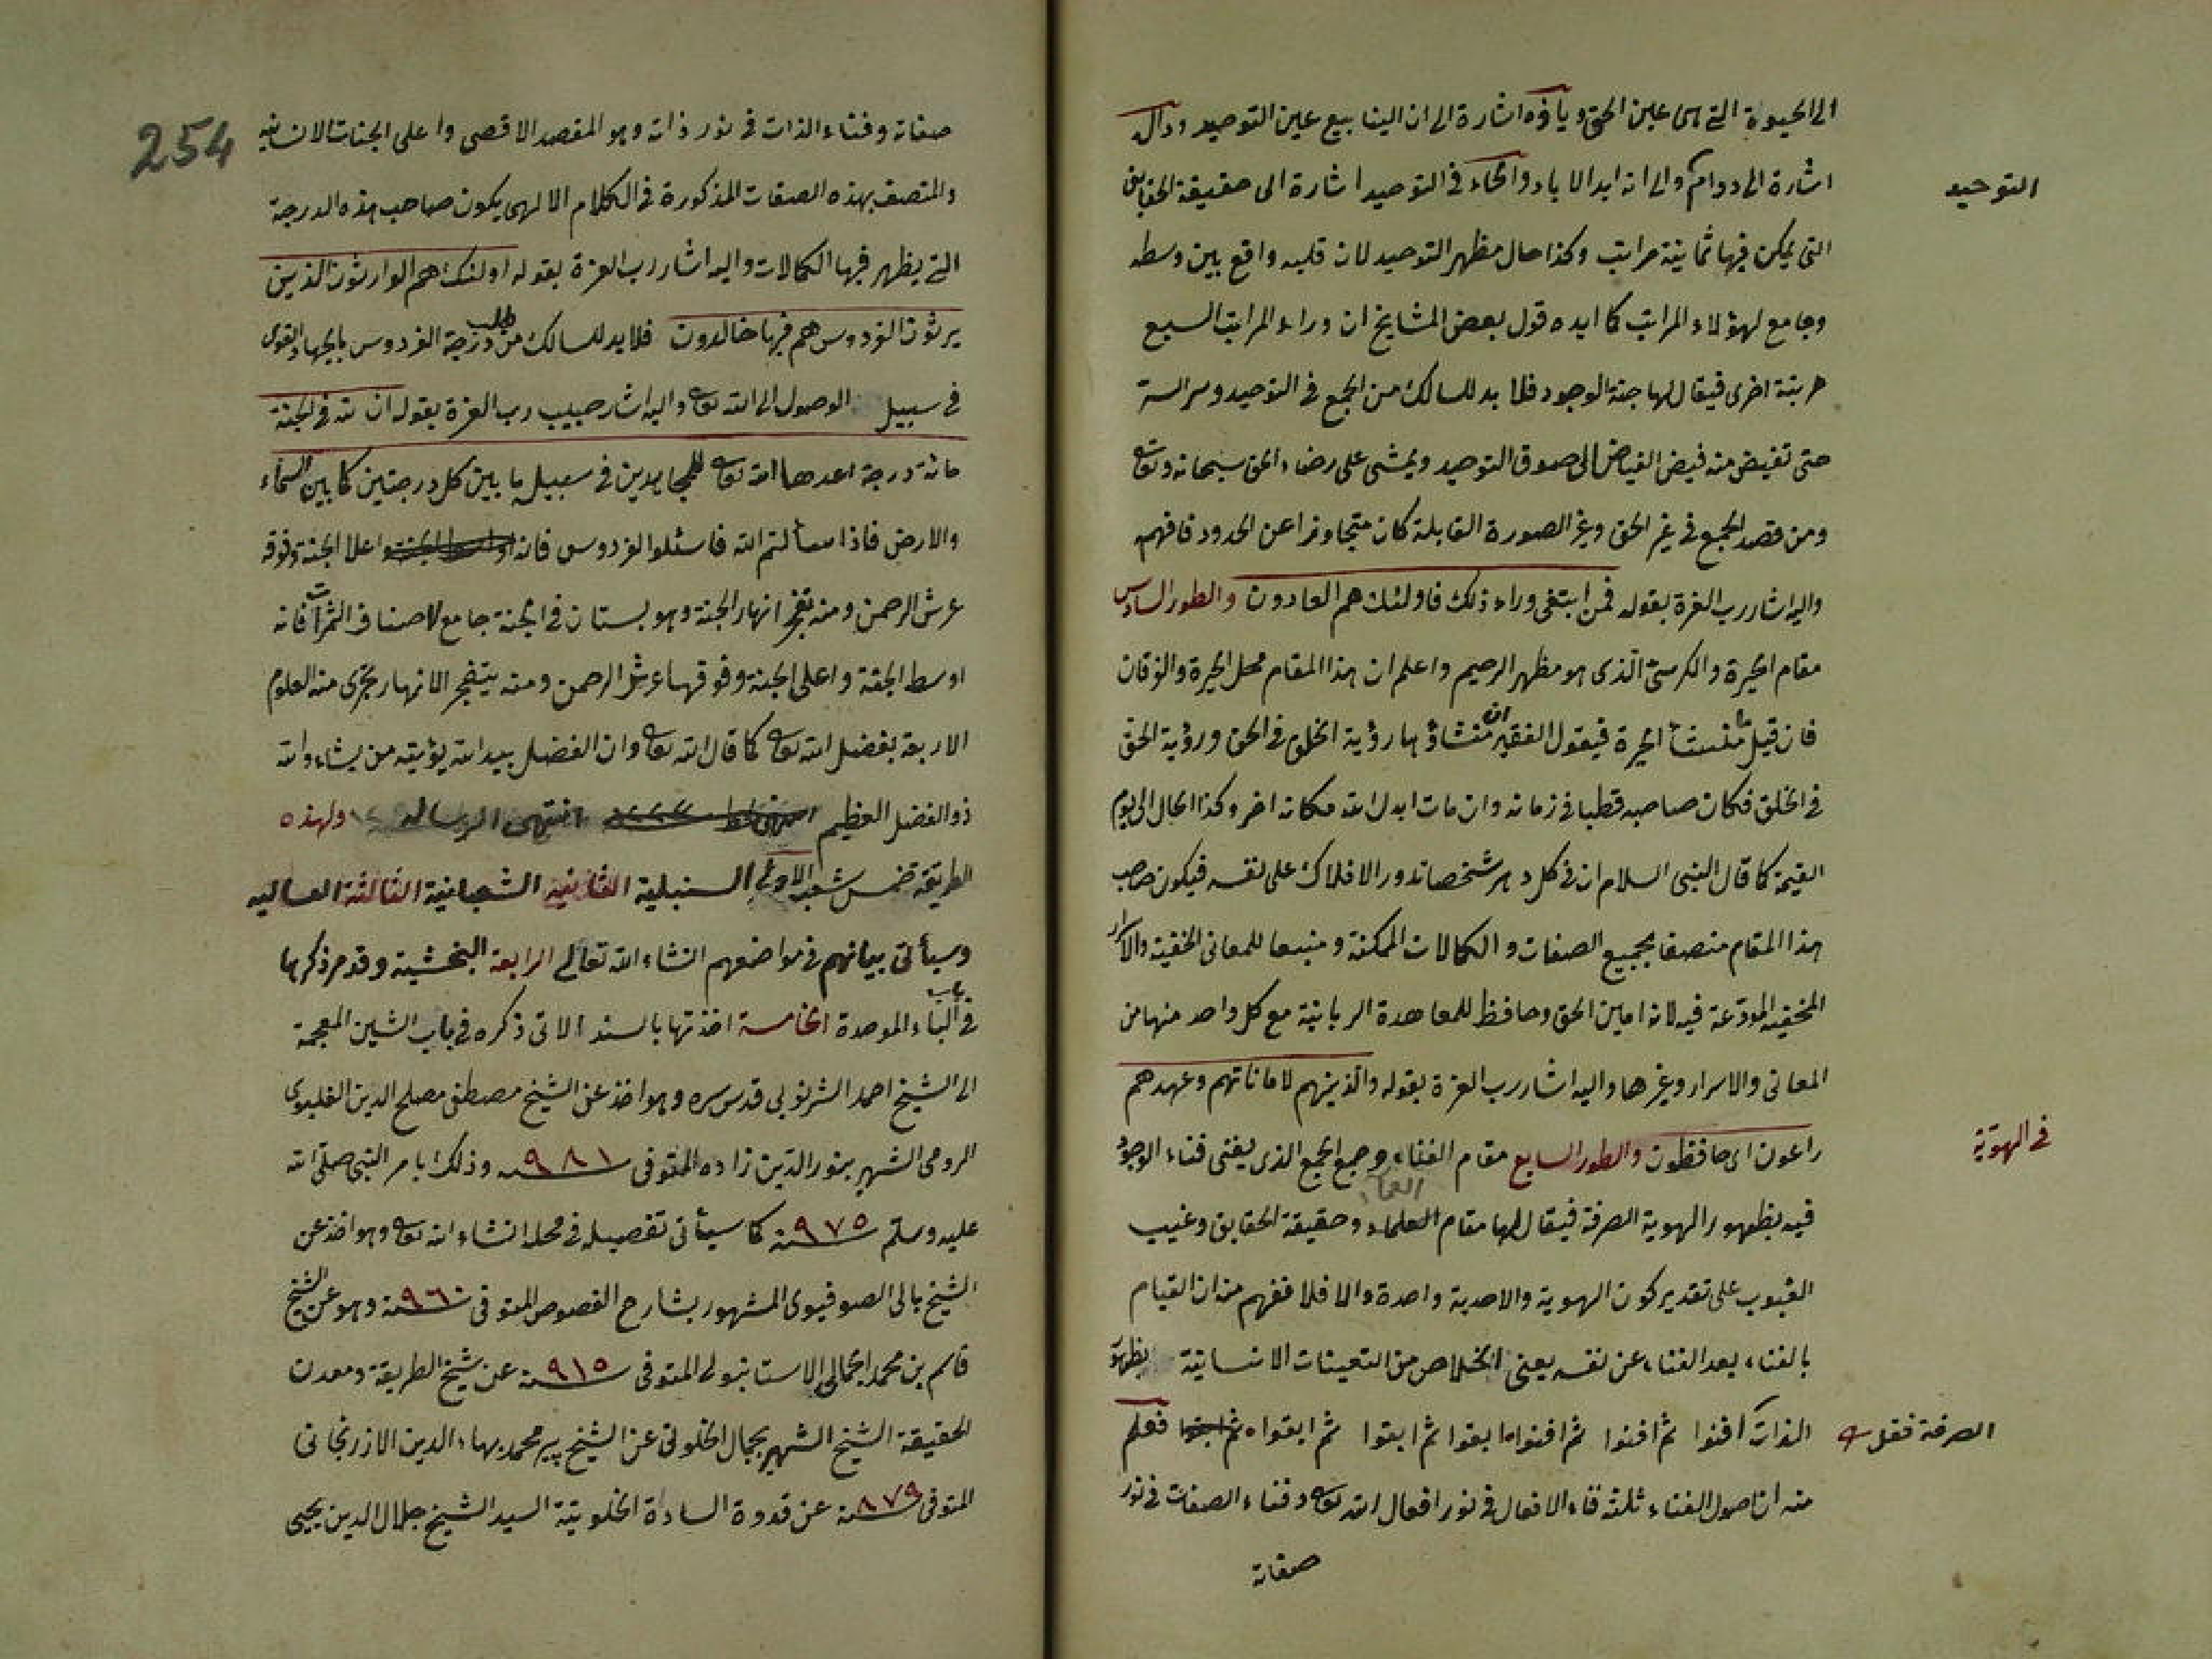 الى الحيوة التى هى عين الحق وياؤه اشارة الى ان الينابيع عين التوحيد ودال
التوحيد
اشارة الى دوام والى انه ابد الاباد والحاء فى التوحيد اشارة الى حقيقة الحقايق
التى يمكن فيها ثمانية مراتب وكذا حال مظهر التوحيد لان قلبه واقع بين وسطه
وجامع لهؤلاء المراتب كما ايده قول بعض المشايخ ان وراء المراتب السبع
مرتبة اخرى فيقال لها جنة الوجود فلا بد للسالك من الجمع فى التوحيد
حتى تفيض منه فيض الفياض الى التوحيد ويمشى على رضاء الحق سبحانه وتعالى
ومن قصد الجمع فى غير الحق وغير الصورة القابلة كان متجاوزا عن الحدود فافهم
واليه اشار رب العزة بقوله فمن ابتغى وراء ذلك فاولئك هم العادون والطور السادس
مقام الحيرة والكرسى الذى هو مظهر الرحيم واعلم ان هذا المقام محل الحيرة والفرقان
فان قيل ما منشأ الحيرة فيقول الفقير ان منشاؤها رؤية الخلق فى الحق ورؤية الحق
فى الخلق فكان صاحبه قطبا فى زمانه وان مات ابدل الله مكانه اخر وكذا الحال الى يوم
القيمة كما قال النبى السلام ان فى كل دهر شخصا تدور الافلاك على نفسه فيكون صاحب
هذا المقام متصفا بجميع الصفات والكمالات الممكنة ومنبعا للمعانى الخفية والاسرار
المخفية المودعة فيه لانه امين الحق وحافظ للمعاهدة الربانية مع كل واحد منها من
المعانى والاسرار وغيرها واليه اشار رب العزة بقوله والذينهم لاماناتهم وعهدهم
فى الهوية
راعون اى حافظون والطور السابع مقام الفناء وجمع الجمع الذى يفنى فناء الوجود
العماء
فيه بظهور الهوية الصرفة فيقال لها مقام العلماء وحقيقة الحقايق وغيب
الغيوب على تقدير كون الهوية والاحدية واحدة والا فلا ففهم منه ان القيام
بالفناء بعد الفناء عن نفسه يعنى الخلاص من التعينات الانسانية بظهور
الصرفة فقل
الذات افنوا ثم افنوا ثم افنوا ابقوا ثم ابقوا ثم ابقوا ثم ابقوا فعلم
منه ان اصول الفناء ثلثة فناء الافعال فى نور افعال الله تعالى وفناء الصفات فى نور
صفاته
254
صفاته وفناء الذات فى نور ذاته وهو المقصد الاقصى واعلى الجنات الانسانية
والمتصف بهذه الصفات المذكورة فى الكلام الالهى يكون صاحب هذه الدرجة
التى يظهر فيها الكمالات واليه اشار رب العزة بقوله اولئك هم الوارثون الذين
يرثون الفردوس هم فيها خالدون فلا بد للسالك من طلب درجة الفردوس بالجهاد القوى
فى سبيل الوصول الى الله تعالى واليه اشار حبيب رب العزة بقوله ان لله فى الجنة
مائة درجة اعدها الله تعالى للمجاهدين فى سبيله ما بين كل درجتين كما بين السماء
والارض فاذا سألتم الله فاسئلوا الفردوس فانه اوسط الجنة واعلا الجنة وفوقه
عرش الرحمن ومنه تفجر انهار الجنة وهو بستان فى الجنة جامع لاصناف الثمرات فانه
اوسط الجنة واعلى الجنة وفوقها عرش الرحمن ومنه يتفجر الانهار يجرى منه العلوم
الاربعة بفضل الله تعالى كما قال الله تعالى وان الفضل بيد الله يؤتيه من يشاء والله
ذو الفضل العظيم انتهى الرسالة ولهذه
الطريقة خمس شعب الاولى السنبلية الثانية الشعبانية الثالثة العسالية
وسيأتى بيانهم فى مواضعهم انشاء الله تعالى الرابعة البخشية وقد مر ذكرها
فى باب الباء الموحدة الخامسة اخذتها بالسند الاتى ذكره فى باب الشين المعجمة
الى الشيخ احمد الشرنوبى قدس سره وهو اخذ عن الشيخ مصطفى مصلح الدين الفلبوى
الرومى الشهير بنور الدين زاده المتوفى سنة ٩٨١ وذلك بامر النبى صلى الله
عليه وسلم سنة ٩٧٥ كما سيأتى تفصيله فى محله انشاء الله تعالى وهو اخذ عن
الشيخ بالى الصوفيوى المشهور بشارح الفصوص المتوفى سنة ٩٦٠ وهو عن الشيخ
قاسم بن محمد الجمالى الاستانبولى المتوفى سنة ٩١٥ عن شيخ الطريقة ومعدن
الحقيقة الشيخ الشهير بجمال الخلوتى عن الشيخ پير محمد بهاء الدين الازرنجانى
المتوفى سنة ٨٧٩ عن قدوة السادة الخلوتية السيد الشيخ جلال الدين يحيى